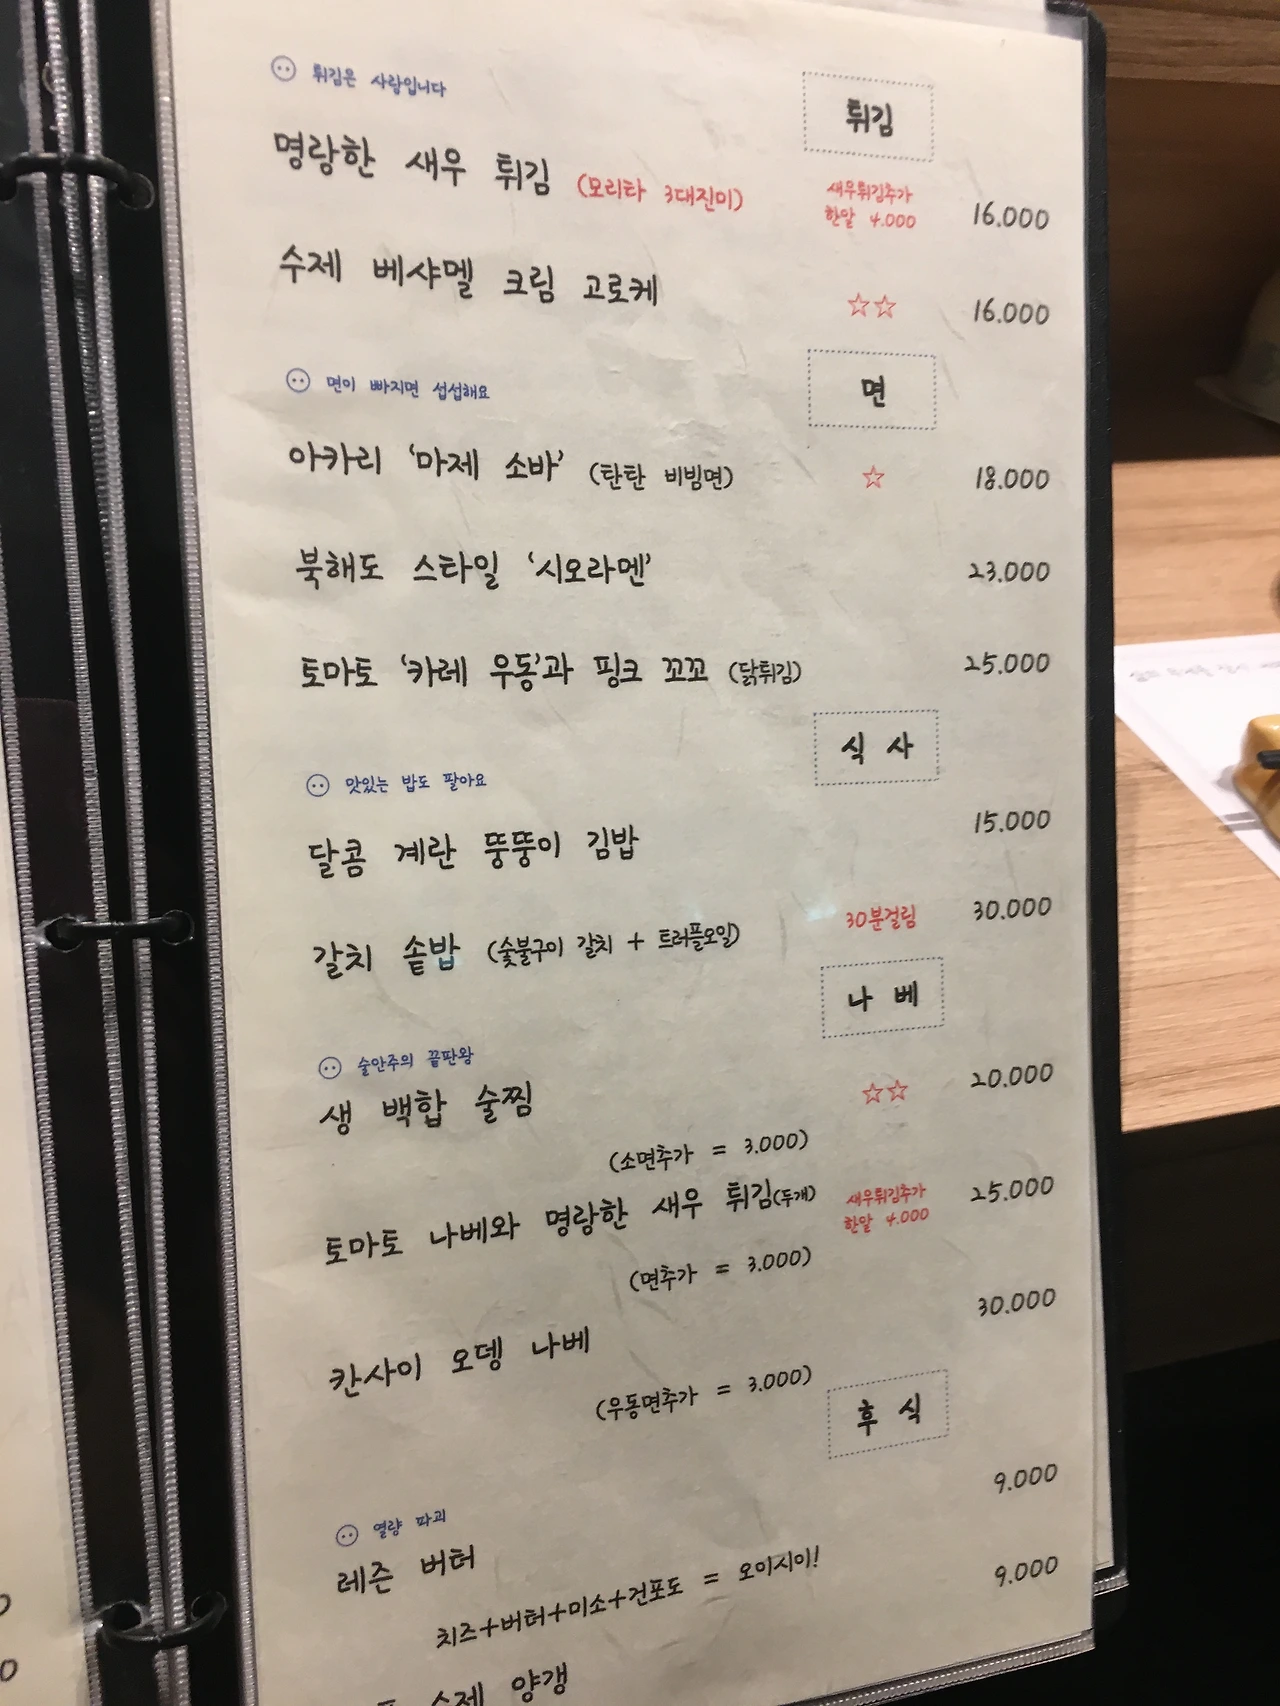 튀김은 사랑입니다
튀김
명랑한 새우 튀김 (모리타 3대진미) 새우튀김추가 한알 4.000 16.000
수제 베샤멜 크림 고로케 ☆☆ 16.000
면이 빠지면 섭섭해요
면
아카리 '마제 소바' (탄탄 비빔면) ☆ 18.000
북해도 스타일 '시오라멘' 23.000
토마토 '카레 우동'과 핑크 꼬꼬 (닭튀김) 25.000
식 사
맛있는 밥도 팔아요
달콤 계란 뚱뚱이 김밥 15.000
갈치 솥밥 (숯불구이 갈치 + 트러플오일) 30분걸림 30.000
나 베
술안주의 끝판왕
생 백합 술찜 ☆☆ 20.000
(소면추가 = 3.000)
토마토 나베와 명랑한 새우 튀김(두개) 새우튀김추가 한알 4.000 25.000
(면추가 = 3.000)
칸사이 오뎅 나베 30.000
(우동면추가 = 3.000)
후 식
열량 파괴
레즌 버터 9.000
치즈+버터+미소+건포도 = 오이시이!
수제 양갱 9.000